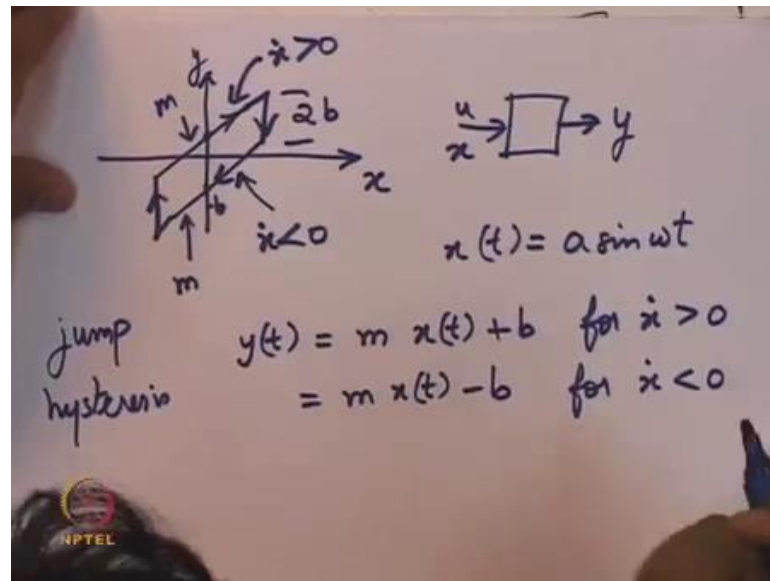 y
ẋ>0
m
2b
x
-b
ẋ<0
m
u
x
y
x(t) = a sin ωt
jump
hysteresis
y(t) = m x(t) + b for ẋ > 0
= m x(t) - b for ẋ < 0
NPTEL